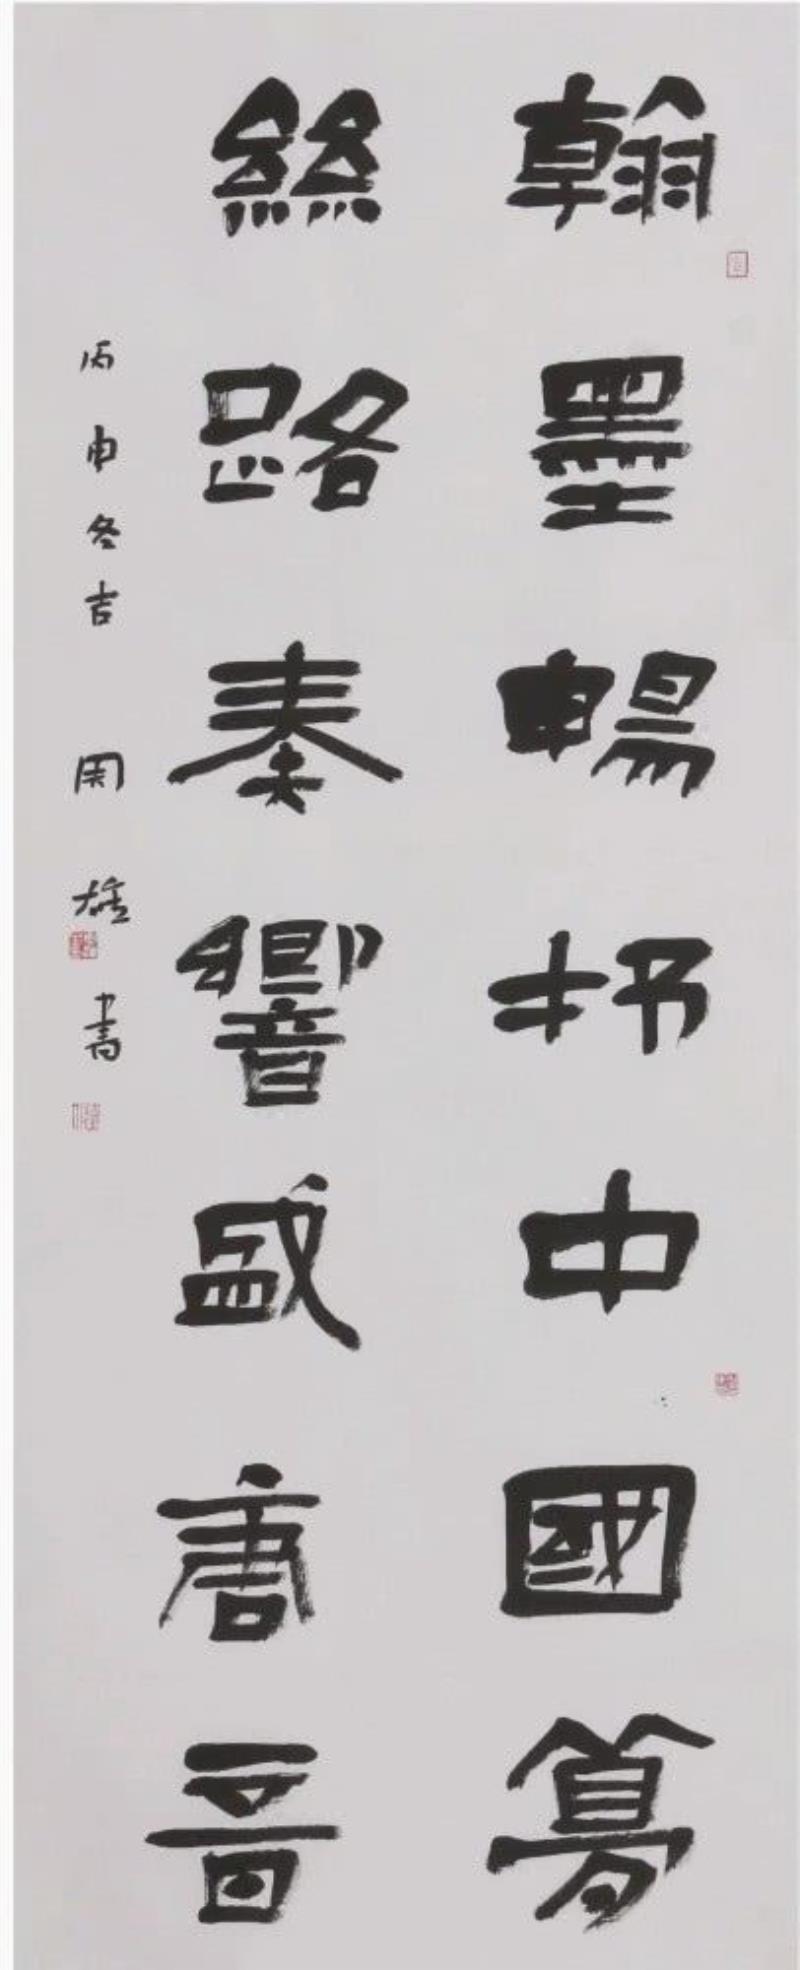 翰墨暢抒中國夢
絲路奏響盛唐音
丙申冬吉 雄書